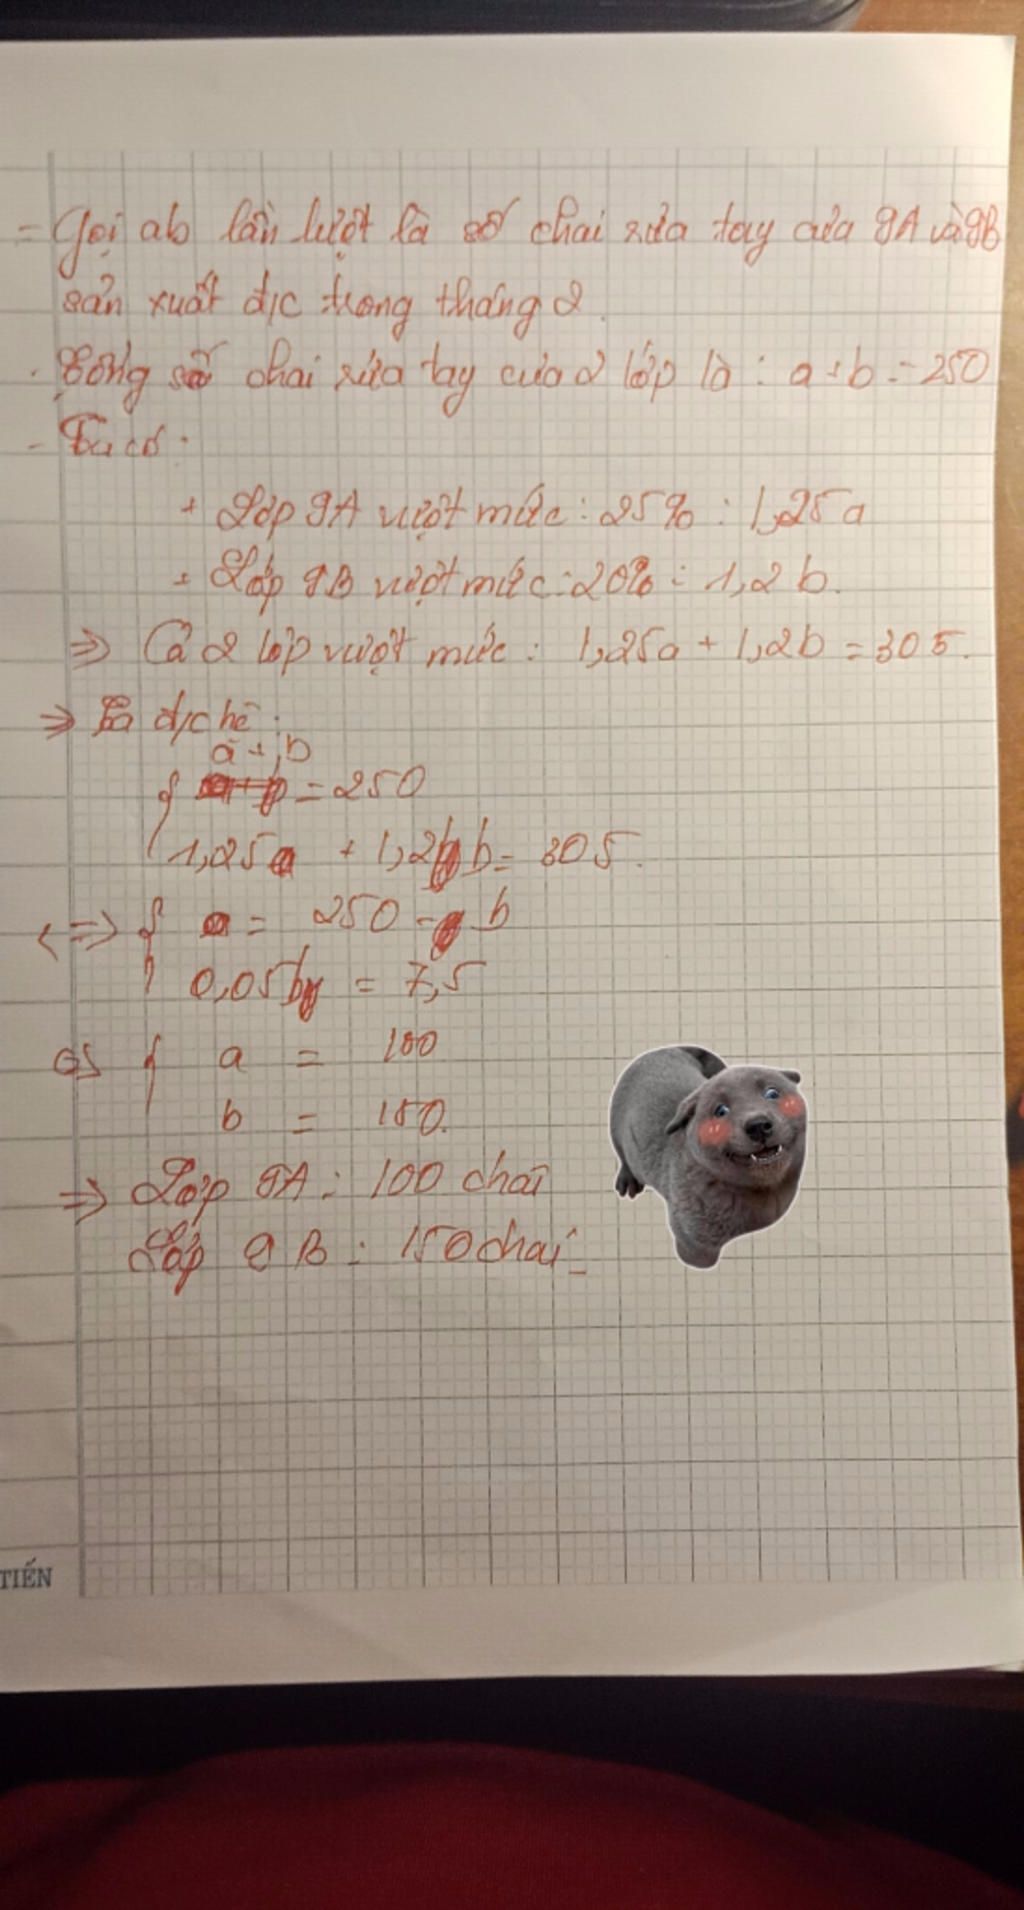 - Gọi a,b lần lượt là số chai rửa tay của 9A và 9B
sản xuất đ/c trong tháng 2.
- Tổng số chai rửa tay của 2 lớp là : a + b = 250
- Ta có :
+ Lớp 9A vượt mức : 25% : 1,25a
+ Lớp 9B vượt mức : 20% : 1,2b.
=> Cả 2 lớp vượt mức : 1,25a + 1,2b = 305.
=> Ta đ/c hệ :
{ a + b = 250
1,25a + 1,2b = 305.
<=> { a = 250 - b
0,05b = 7,5
<=> { a = 100
b = 150.
=> Lớp 9A : 100 chai
Lớp 9B : 150 chai
TIẾN